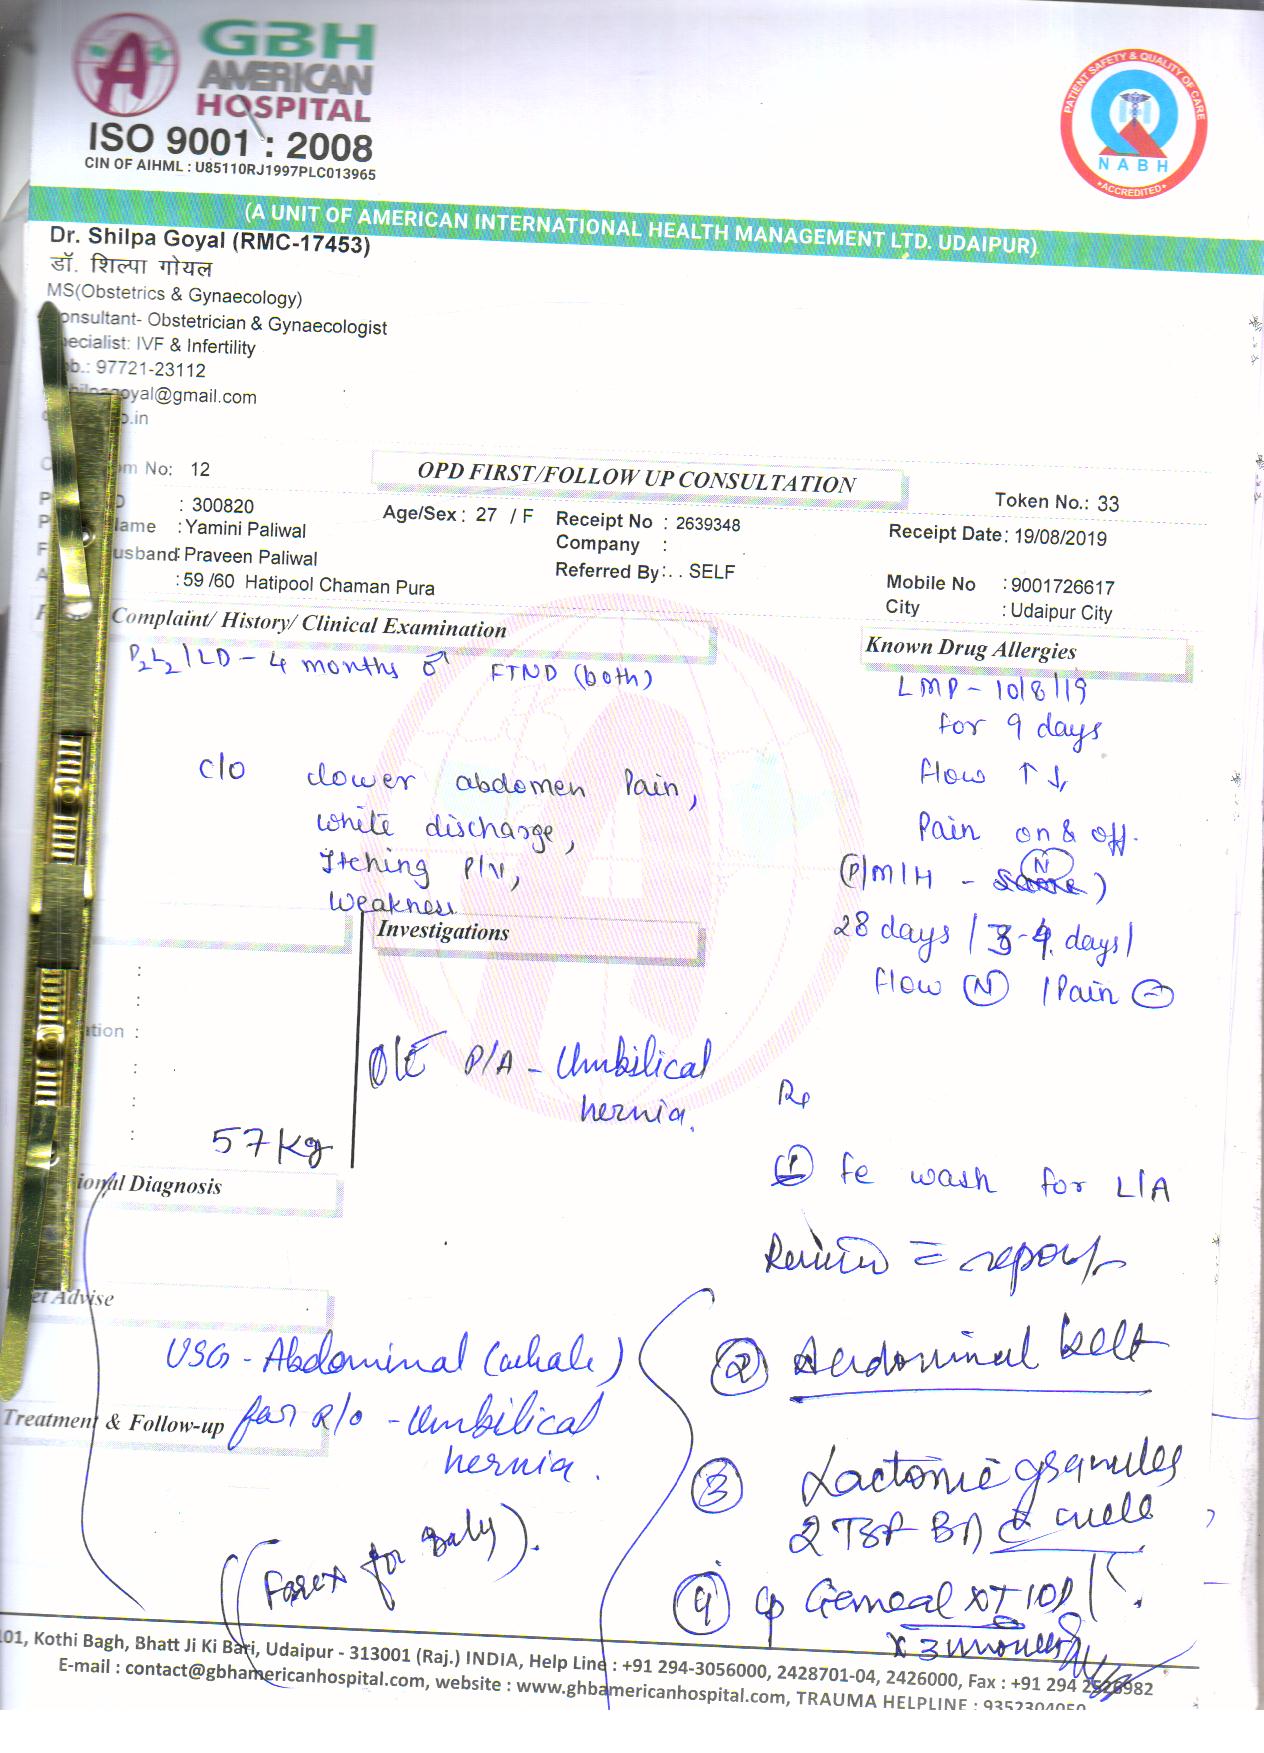 GBH
AMERICAN
HOSPITAL
ISO 9001 : 2008
CIN OF AIHML : U85110RJ1997PLC013965
PATIENT SAFETY & QUALITY OF CARE
NABH
ACCREDITED
(A UNIT OF AMERICAN INTERNATIONAL HEALTH MANAGEMENT LTD. UDAIPUR)
Dr. Shilpa Goyal (RMC-17453)
डॉ. शिल्पा गोयल
MS(Obstetrics & Gynaecology)
onsultant- Obstetrician & Gynaecologist
ecialist: IVF & Infertility
b.: 97721-23112
hilpagoyal@gmail.com
.in
m No: 12
OPD FIRST/FOLLOW UP CONSULTATION
Token No.: 33
D : 300820
Age/Sex : 27 / F
Receipt No : 2639348
Receipt Date: 19/08/2019
lame : Yamini Paliwal
Company :
usband: Praveen Paliwal
Referred By: . . SELF
Mobile No : 9001726617
: 59 /60 Hatipool Chaman Pura
City : Udaipur City
Complaint/ History/ Clinical Examination
Known Drug Allergies
P2L2 / LD - 4 months ♂ FTND (both)
LMP - 10/8/19
for 9 days
Flow ↑↓
Pain on & off.
c/o lower abdomen Pain,
white discharge,
Itching P/V,
Weakness
P/M/H - (N)
28 days / 3-4 days /
flow (N) / Pain
Investigations
ation :
O/E P/A - Umbilical
hernia.
57 Kg
Rx
(1) fe wash for L/A
Review = reports
ional Diagnosis
et Advise
USG - Abdominal (whole)
for R/o - Umbilical
hernia.
Treatment & Follow-up
(Farex for baby).
(2) Abdominal belt
(3) Lactonic granules
2 TSF BD
(4) cp Gemcal XT 10D
x 3 months
101, Kothi Bagh, Bhatt Ji Ki Bari, Udaipur - 313001 (Raj.) INDIA, Help Line : +91 294-3056000, 2428701-04, 2426000, Fax : +91 294 2526982
E-mail : contact@gbhamericanhospital.com, website : www.ghbamericanhospital.com, TRAUMA HELPLINE : 9352304050